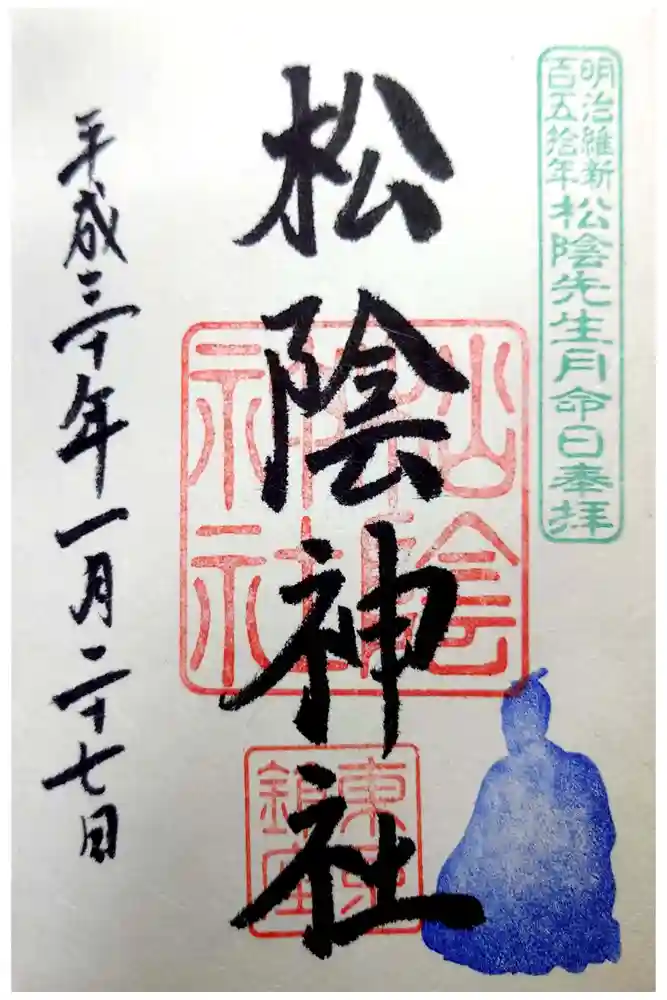 明治維新
百五拾年
松陰先生月命日奉拝
松陰神社
東京
鎮座
平成三十年一月二十七日